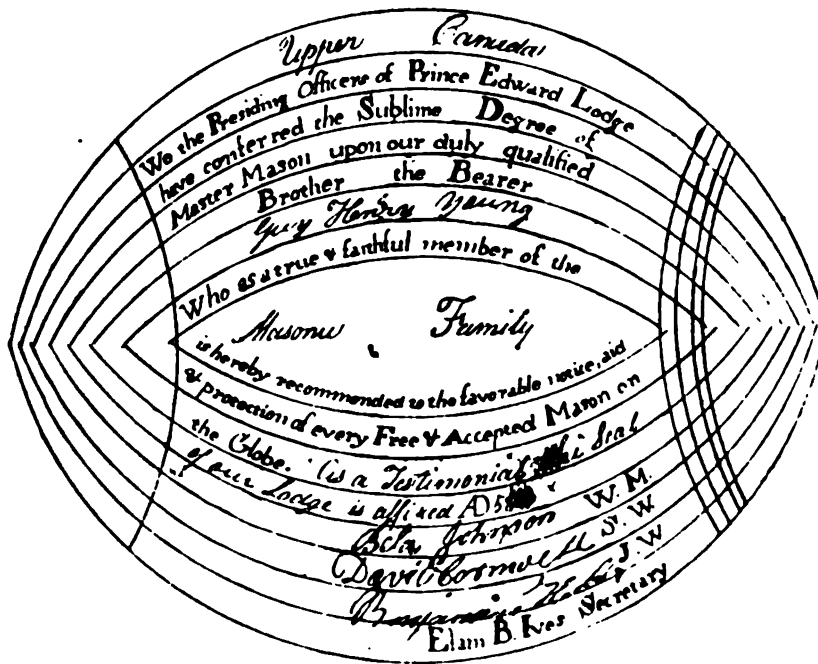 Upper Canada
We the Presiding Officers of Prince Edward Lodge
have conferred the Sublime Degree of
Master Mason upon our duly qualified
Brother the Bearer
Guy Henry Young
Who as a true & faithful member of the
Masonic Family
is hereby recommended to the favorable notice, aid
& protection of every Free & Accepted Mason on
the Globe. is a Testimonial Seal
of our Lodge is affixed AD
Bela Johnson W. M.
David S. W
Benjamin J. W
Elam B. Ives Secretary